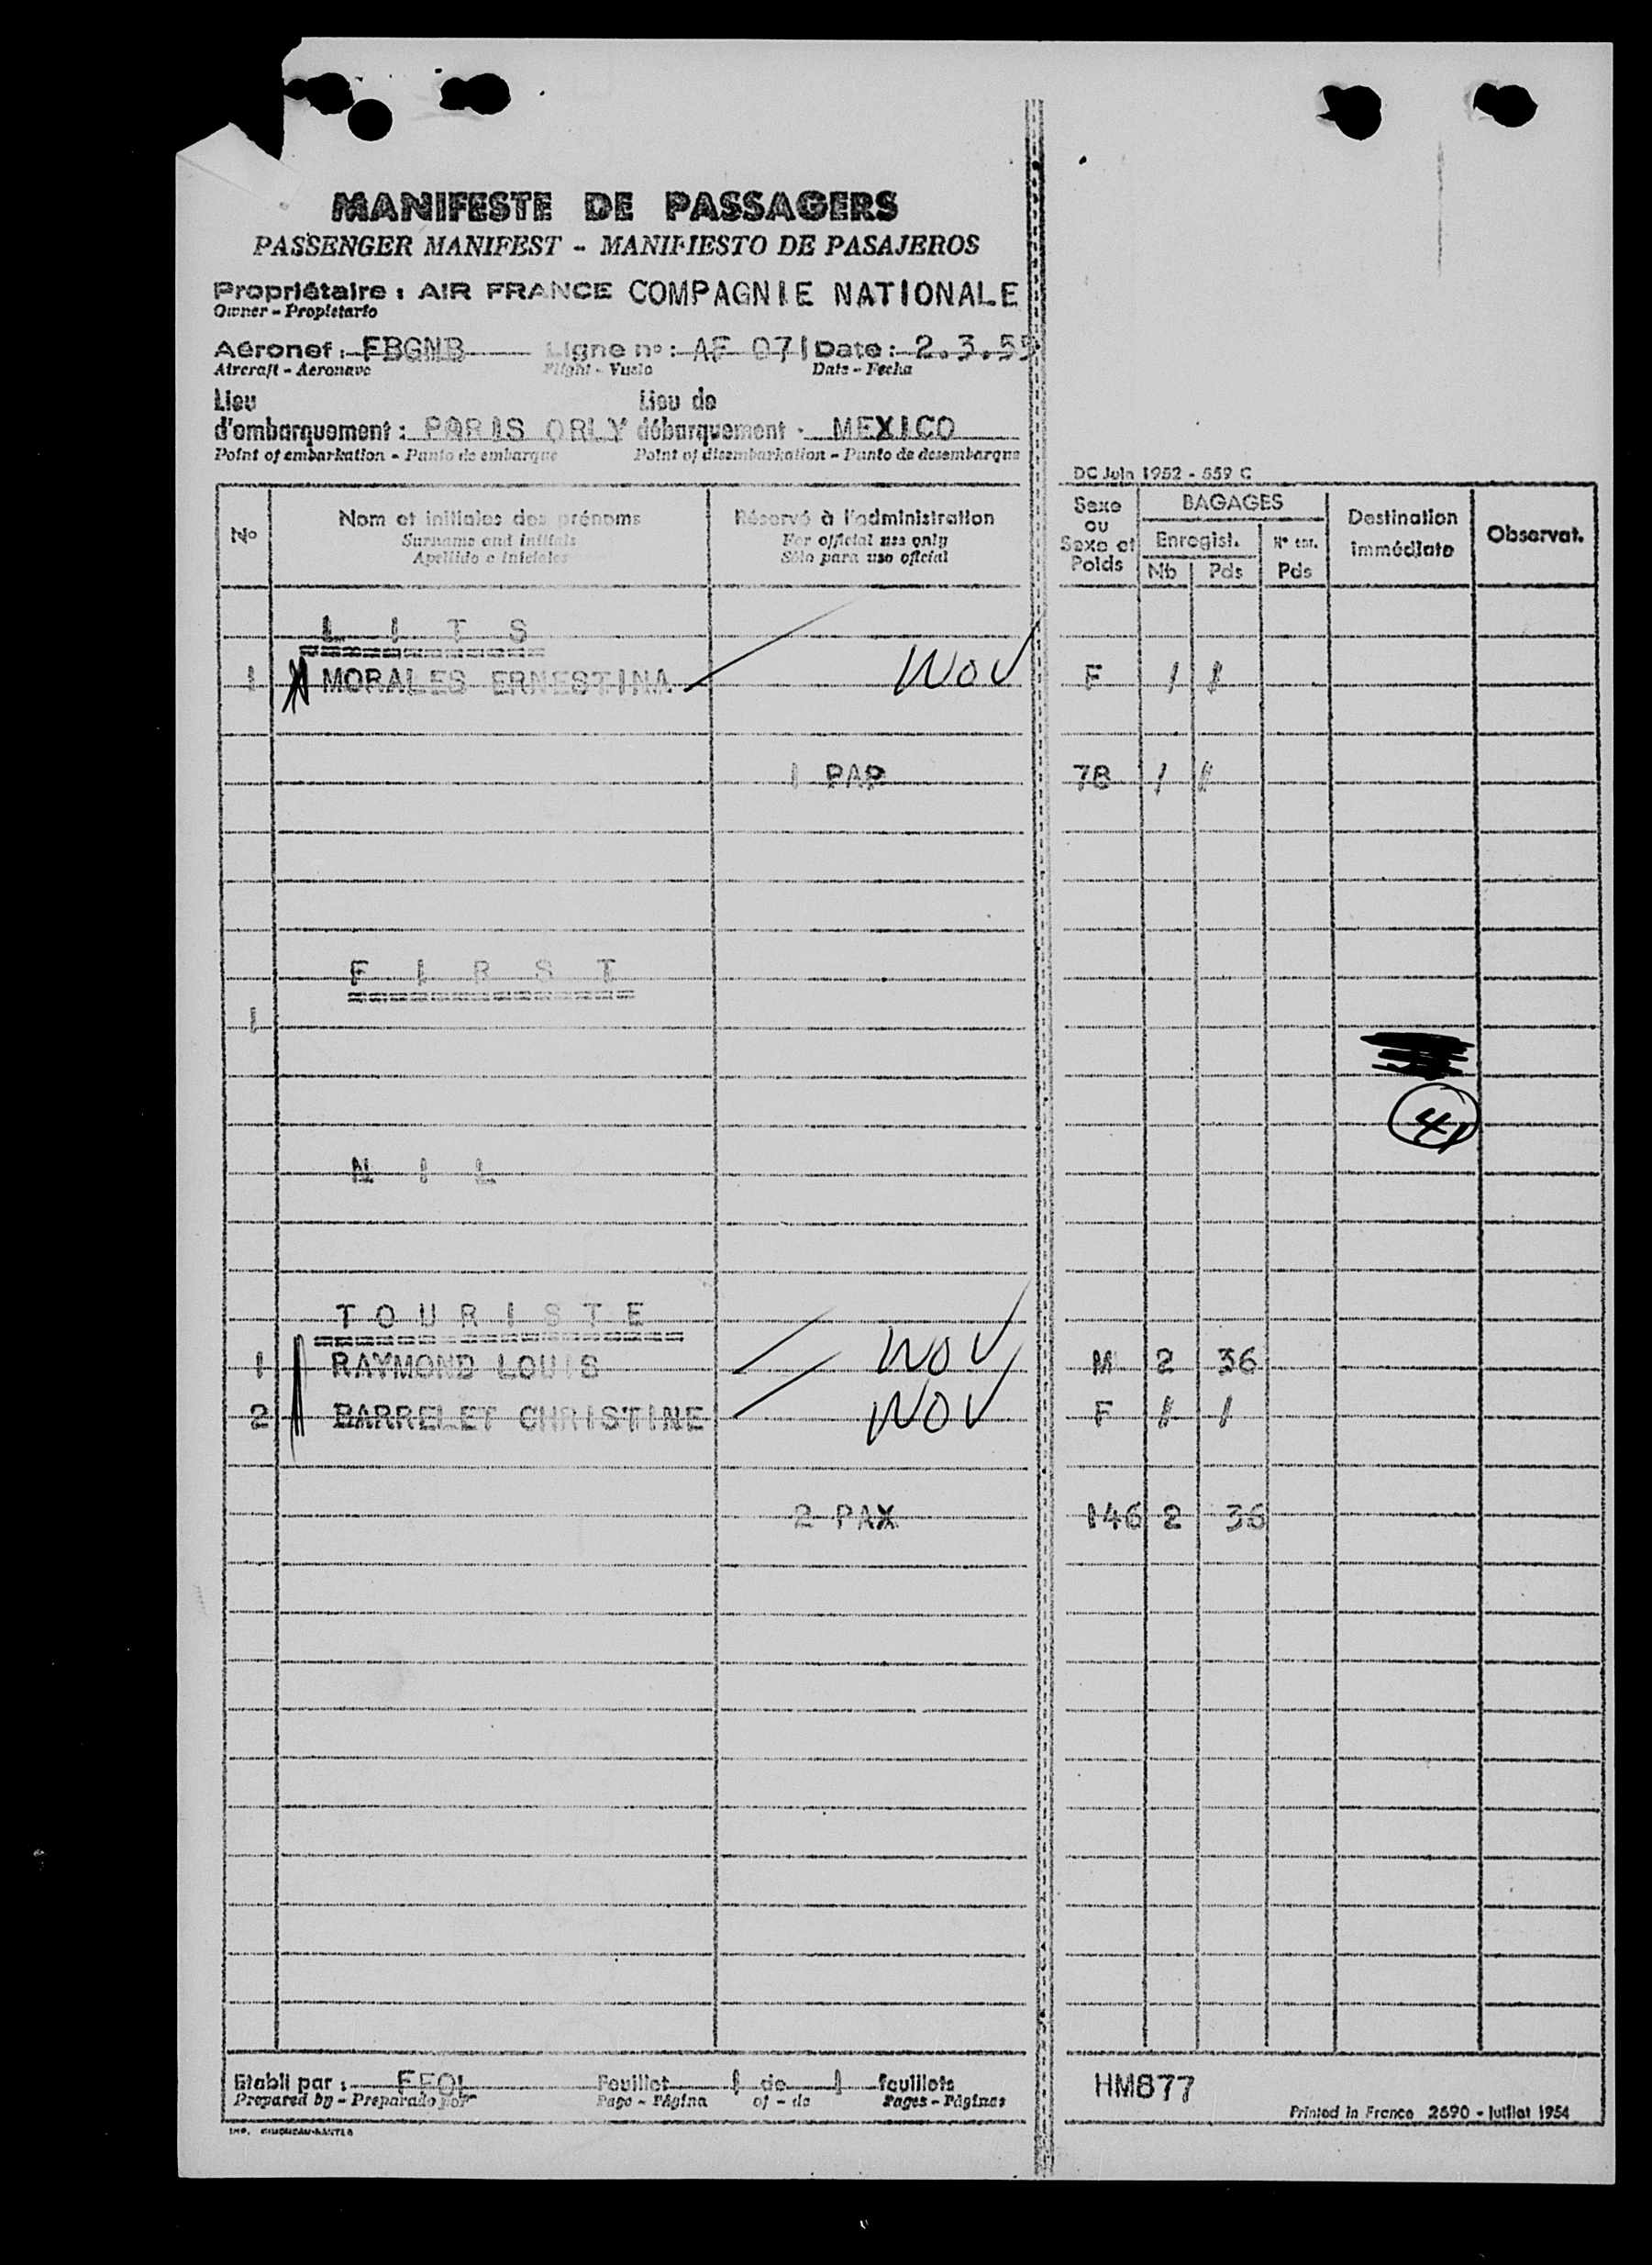 MANIFESTE DE PASSAGERS
PASSENGER MANIFEST - MANIFIESTO DE PASAJEROS
Propriétaire : AIR FRANCE COMPAGNIE NATIONALE
Owner - Propietario
Aéronef : FBGNB Ligne nº : AF 071 Date : 2.3.55
Aircraft - Aeronave Flight - Vuelo Date - Fecha
Lieu Lieu de
d'embarquement : PARIS ORLY débarquement : MEXICO
Point of embarkation - Punto de embarque Point of disembarkation - Punto de desembarque
DC Juin 1952 - 559 C
Nº Nom et initiales des prénoms Réservé à l'administration Sexe ou Sexe et Poids BAGAGES Destination immédiate Observat.
Surname and initials For official use only Enregist. Nº enr.
Apellido e iniciales Sólo para uso oficial Nb Pds Pds
L I T S
1 MORALES ERNESTINA NOV F / /
1 PAP 78 / /
F I R S T
1
41
N I L
T O U R I S T E
1 RAYMOND LOUIS NOV M 2 36
2 BARRELET CHRISTINE NOV F / /
2 PAX 146 2 36
Etabli par : Feuillet 1 de 1 feuillets HM877
Prepared by - Preparado por Page - Página of - de Pages - Páginas
Printed in France 2690 - juillet 1954